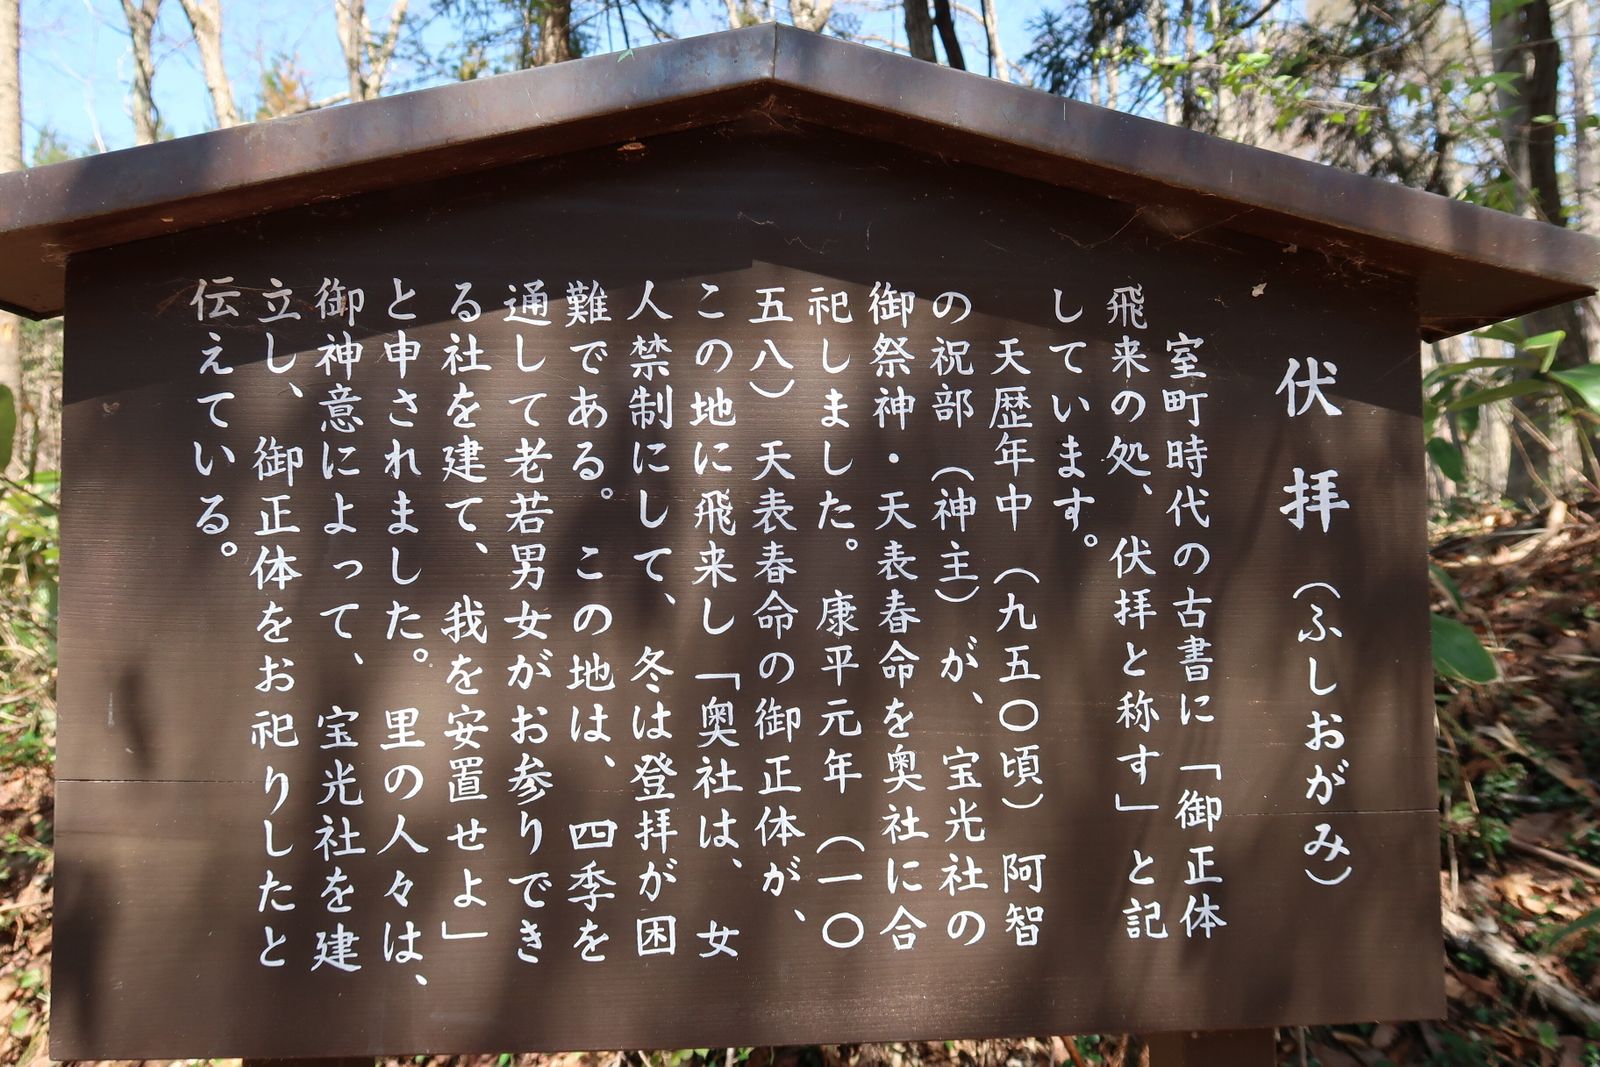 伏拝（ふしおがみ）
室町時代の古書に「御正体
飛来の処、伏拝と称す」と記
しています。
天歴年中（九五〇頃）阿智
の祝部（神主）が、宝光社の
御祭神・天表春命を奥社に合
祀しました。康平元年（一〇
五八）天表春命の御正体が、
この地に飛来し「奥社は、女
人禁制にして、冬は登拝が困
難である。この地は、四季を
通して老若男女がお参りでき
る社を建て、我を安置せよ」
と申されました。里の人々は、
御神意によって、宝光社を建
立し、御正体をお祀りしたと
伝えている。